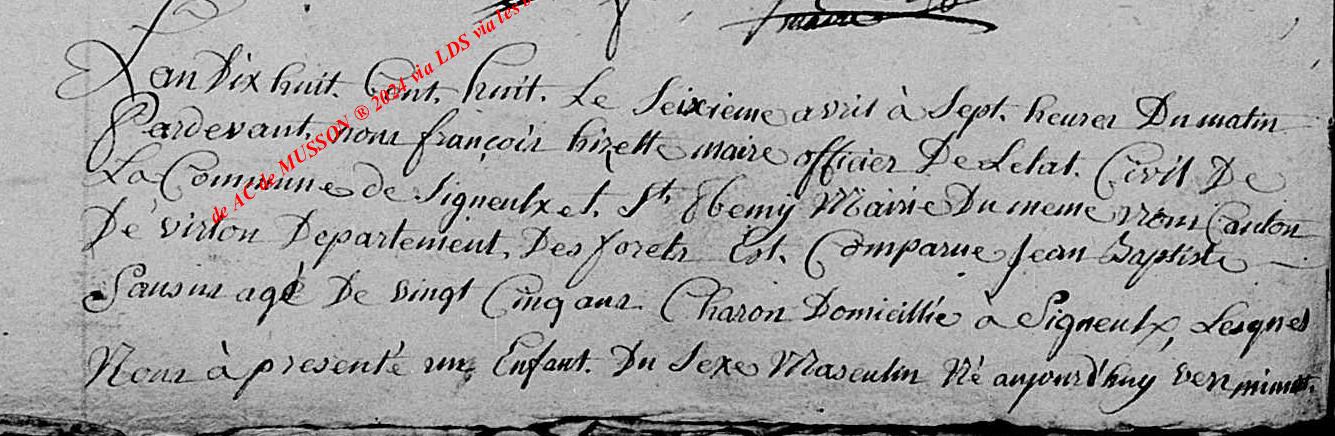 maire
Lan Dix huit. Cent. huit. Le Seixieme avril à Sept. heures Du matin
Pardevant nous françois hizette maire officier De Letat. Civil De
La Commune de Signeulx et. St. Rhemy Mairie Du meme nom Canton
De virton Departement Des forets Est. Comparue Jean Baptiste
agé De vingt Cinq ans Charon Domicillié à Signeulx, Lesquel
Nous à presenté un Enfant. Du Sexe Masculin Né aujourd'huy vers minuit.
de AC de MUSSON ® 2024 via LDS via les